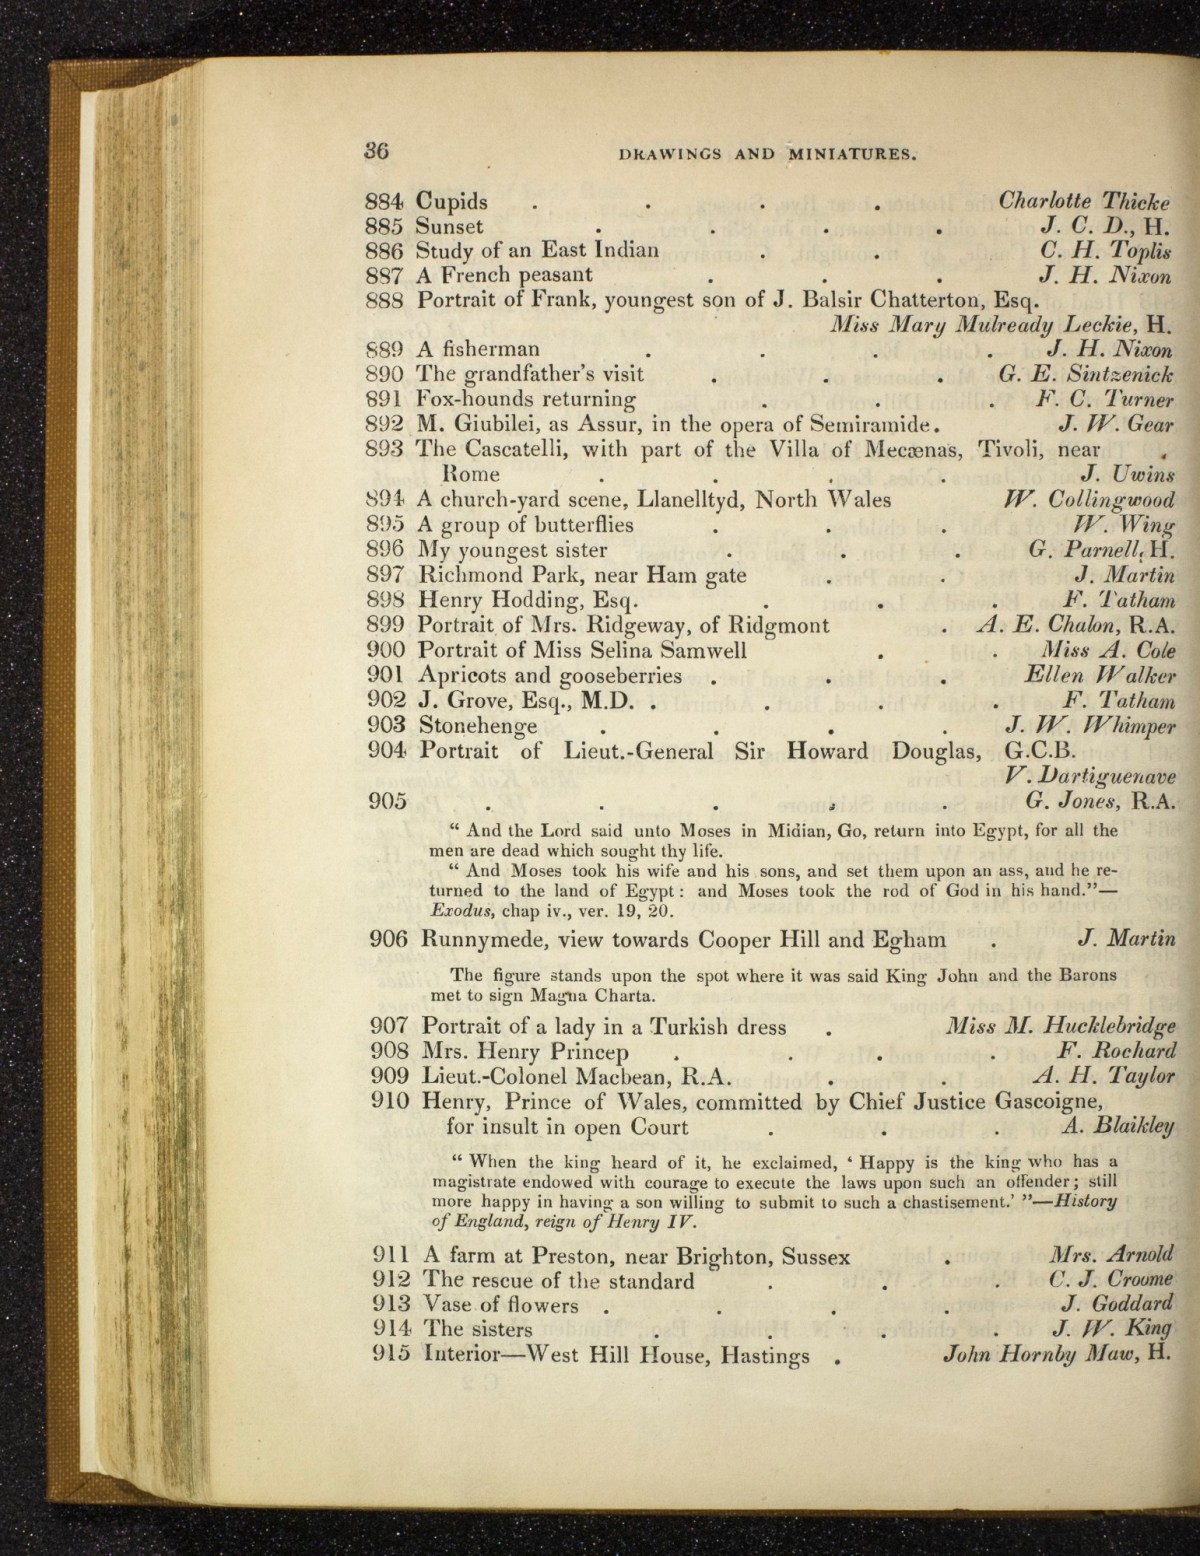 36 DRAWINGS AND MINIATURES.
884 Cupids . . . . Charlotte Thicke
885 Sunset . . . . J. C. D., H.
886 Study of an East Indian . . C. H. Toplis
887 A French peasant . . . J. H. Nixon
888 Portrait of Frank, youngest son of J. Balsir Chatterton, Esq.
Miss Mary Mulready Leckie, H.
889 A fisherman . . . . J. H. Nixon
890 The grandfather's visit . . . G. E. Sintzenick
891 Fox-hounds returning . . . F. C. Turner
892 M. Giubilei, as Assur, in the opera of Semiramide. J. W. Gear
893 The Cascatelli, with part of the Villa of Mecænas, Tivoli, near
Rome . . . . J. Uwins
894 A church-yard scene, Llanelltyd, North Wales W. Collingwood
895 A group of butterflies . . . W. Wing
896 My youngest sister . . . G. Parnell, H.
897 Richmond Park, near Ham gate . . J. Martin
898 Henry Hodding, Esq. . . . F. Tatham
899 Portrait of Mrs. Ridgeway, of Ridgmont . A. E. Chalon, R.A.
900 Portrait of Miss Selina Samwell . . Miss A. Cole
901 Apricots and gooseberries . . . Ellen Walker
902 J. Grove, Esq., M.D. . . . . F. Tatham
903 Stonehenge . . . . J. W. Whimper
904 Portrait of Lieut.-General Sir Howard Douglas, G.C.B.
V. Dartiguenave
905 . . . . . G. Jones, R.A.
“ And the Lord said unto Moses in Midian, Go, return into Egypt, for all the
men are dead which sought thy life.
“ And Moses took his wife and his sons, and set them upon an ass, and he re-
turned to the land of Egypt : and Moses took the rod of God in his hand.”—
Exodus, chap iv., ver. 19, 20.
906 Runnymede, view towards Cooper Hill and Egham . J. Martin
The figure stands upon the spot where it was said King John and the Barons
met to sign Magna Charta.
907 Portrait of a lady in a Turkish dress . Miss M. Hucklebridge
908 Mrs. Henry Princep . . . . F. Rochard
909 Lieut.-Colonel Macbean, R.A. . . A. H. Taylor
910 Henry, Prince of Wales, committed by Chief Justice Gascoigne,
for insult in open Court . . . A. Blaikley
“ When the king heard of it, he exclaimed, ‘ Happy is the king who has a
magistrate endowed with courage to execute the laws upon such an offender ; still
more happy in having a son willing to submit to such a chastisement.’ ”—History
of England, reign of Henry IV.
911 A farm at Preston, near Brighton, Sussex . Mrs. Arnold
912 The rescue of the standard . . . C. J. Croome
913 Vase of flowers . . . . J. Goddard
914 The sisters . . . . J. W. King
915 Interior—West Hill House, Hastings . John Hornby Maw, H.